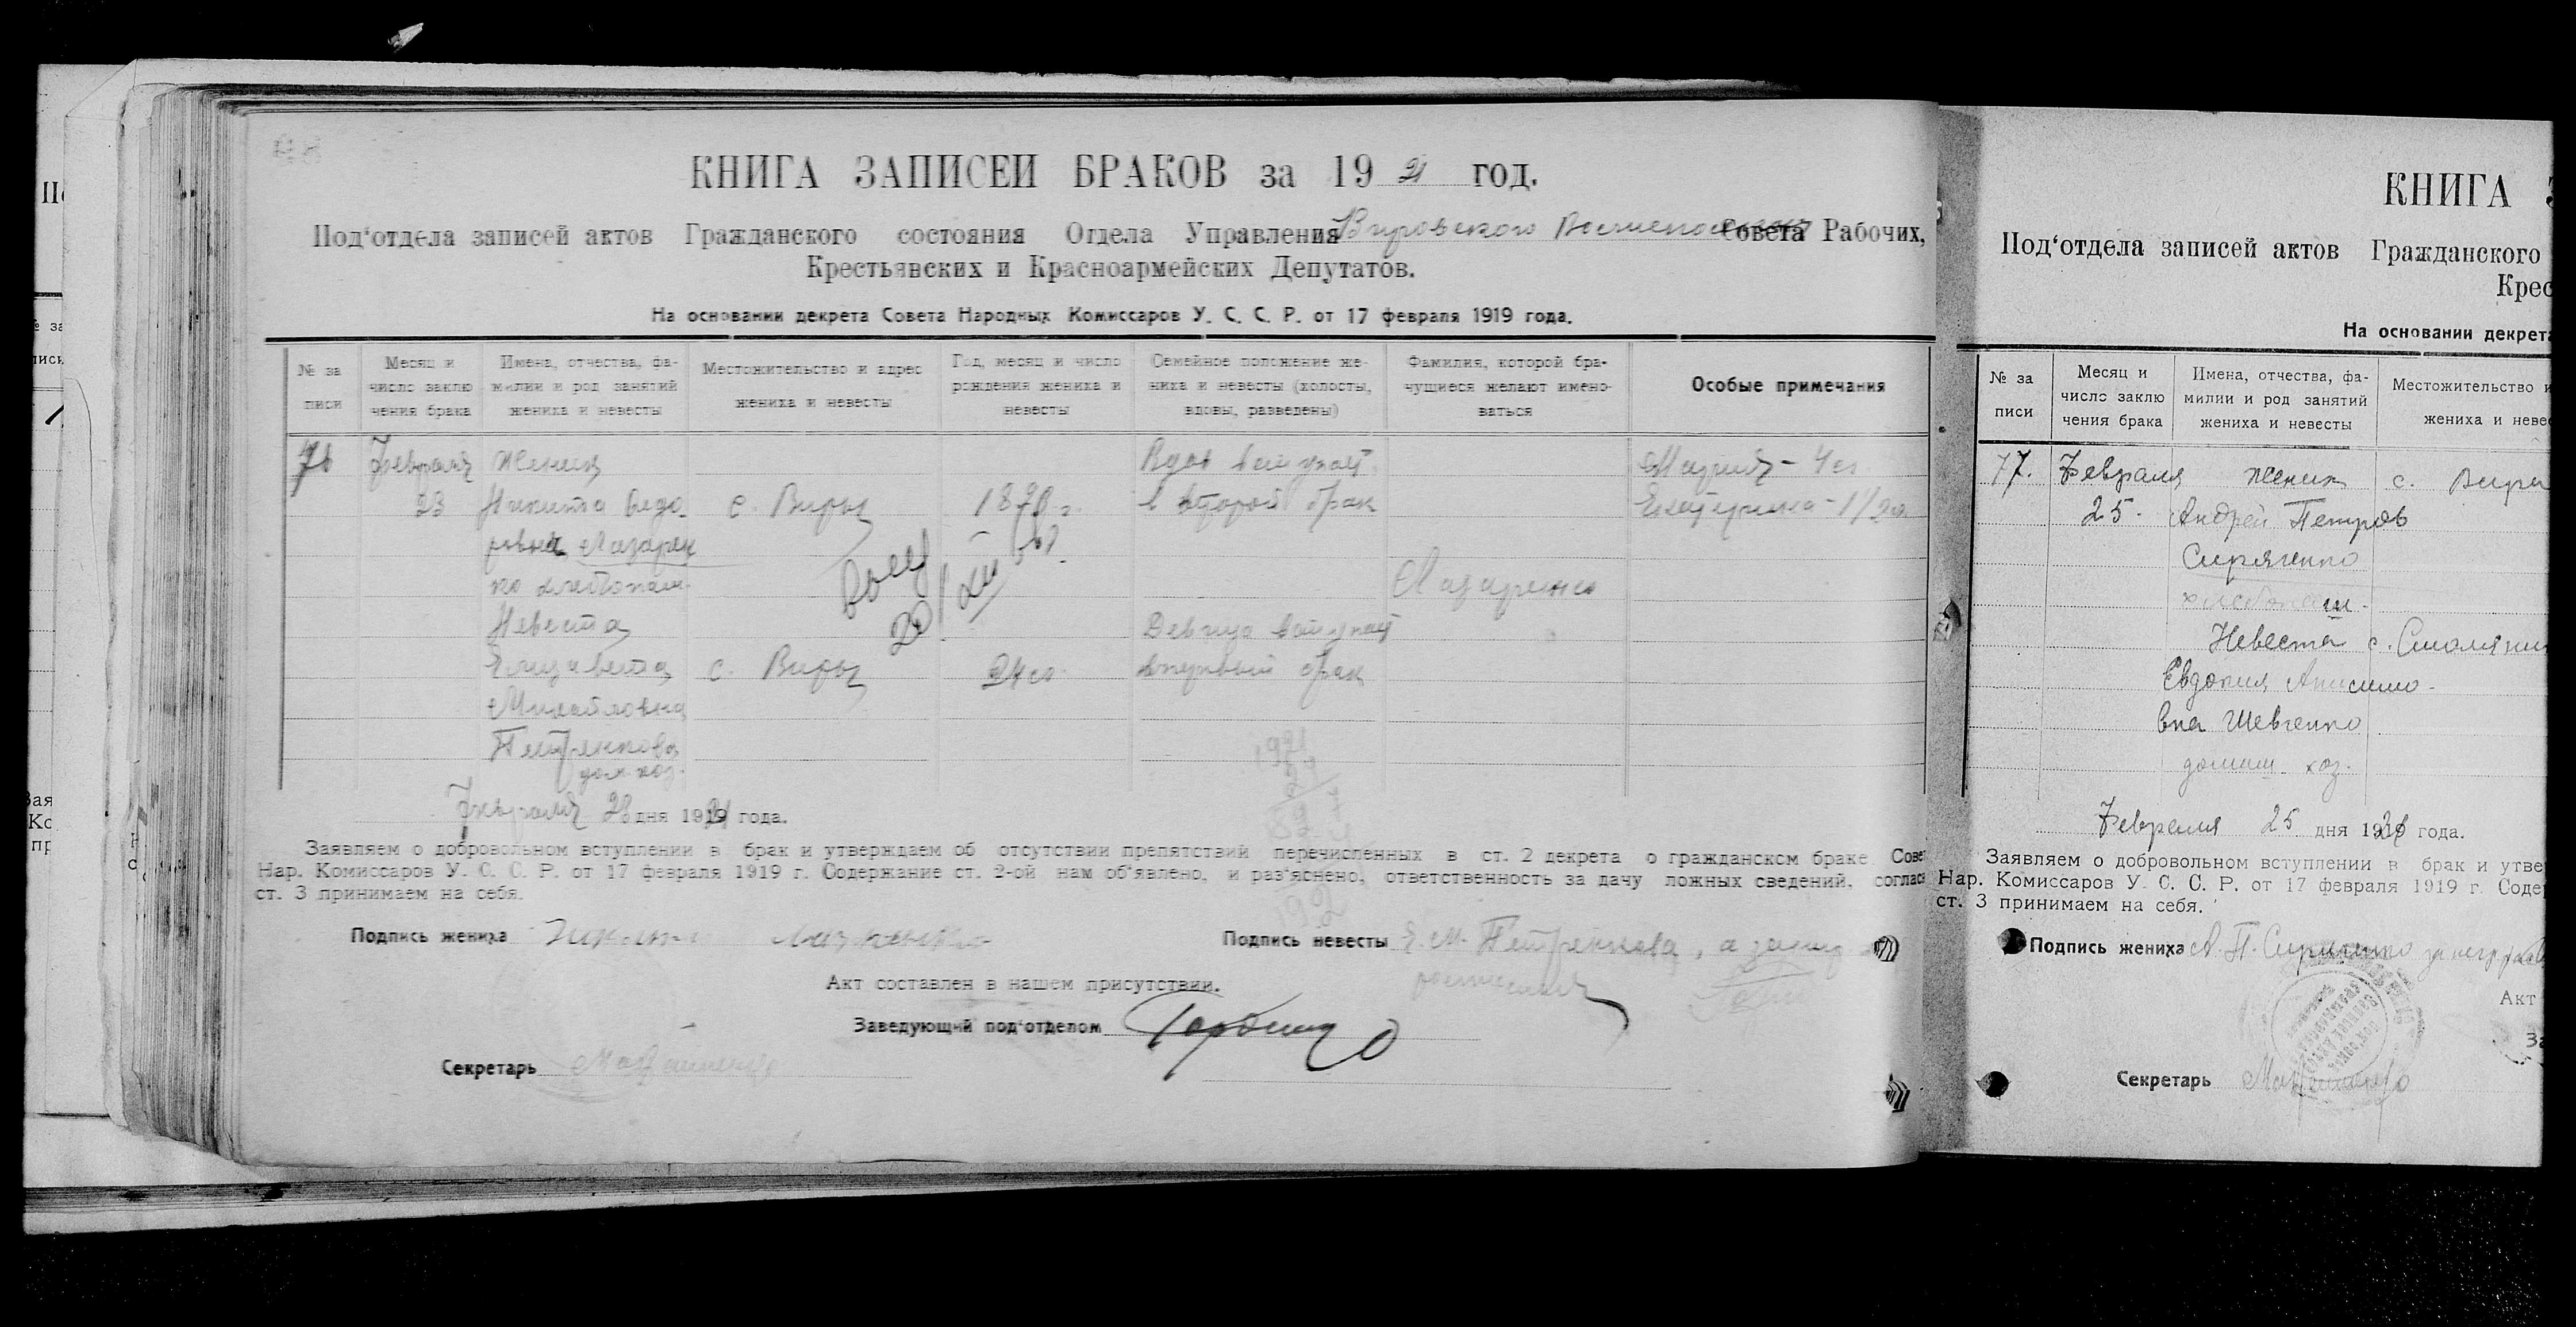 КНИГА ЗАПИСЕЙ БРАКОВ за 1921 год.
Под'отдела записей актов Гражданского состояния Отдела Управления Вировского Совета Рабочих,
Крестьянских и Красноармейских Депутатов.
На основании декрета Совета Народных Комиссаров У. С. С. Р. от 17 февраля 1919 года.
№ за
писи
Месяц и
число заклю
чения брака
Имена, отчества, фа-
милии и род занятий
жениха и невесты
Местожительство и адрес
жениха и невесты
Год, месяц и число
рождения жениха и
невесты
Семейное положение же-
ниха и невесты (холосты,
вдовы, разведены)
Фамилия, которой бра-
чущиеся желают имено-
ваться
Особые примечания
76
Февраля
23
Жених
Никита Федо
Лазарен
ко хлебопаш.
Невеста
Елизавета
Михайловна
Петренкова
дом. хоз.
с. Виры
с. Виры
24
20/XII
Вдов вступает
в второй брак
Девица вступает
в первый брак
Лазаренко
Мария - 4
Екатерина - 1/2
Февраля 23 дня 1921 года.
Заявляем о добровольном вступлении в брак и утверждаем об отсутствии препятствий перечисленных в ст. 2 декрета о гражданском браке. Сове
Нар. Комиссаров У. С. С. Р. от 17 февраля 1919 г. Содержание ст. 2-ой нам об'явлено, и раз'яснено, ответственность за дачу ложных сведений, соглас
ст. 3 принимаем на себя.
Подпись жениха Никита Лазаренко
Подпись невесты Е. М. Петренкова, а за
Акт составлен в нашем присутствии.
Заведующий под'отделом
Секретарь
КНИГА З
Под'отдела записей актов Гражданского
Крес
На основании декрета
№ за
писи
Месяц и
число заклю
чения брака
Имена, отчества, фа-
милии и род занятий
жениха и невесты
Местожительство и
жениха и неве
77.
Февраля
25.
Жених
Андрей Петров
Сиряченко
хлебопаш.
Невеста
Евдокия Анисимо-
вна Шевченко
домаш. хоз.
с. Вири
Февраля 25 дня 1921 года.
Заявляем о добровольном вступлении в брак и утве
Нар. Комиссаров У. С. С. Р. от 17 февраля 1919 г. Соде
ст. 3 принимаем на себя.
Подпись жениха А. П. Сиряченко
Акт
За
Секретарь